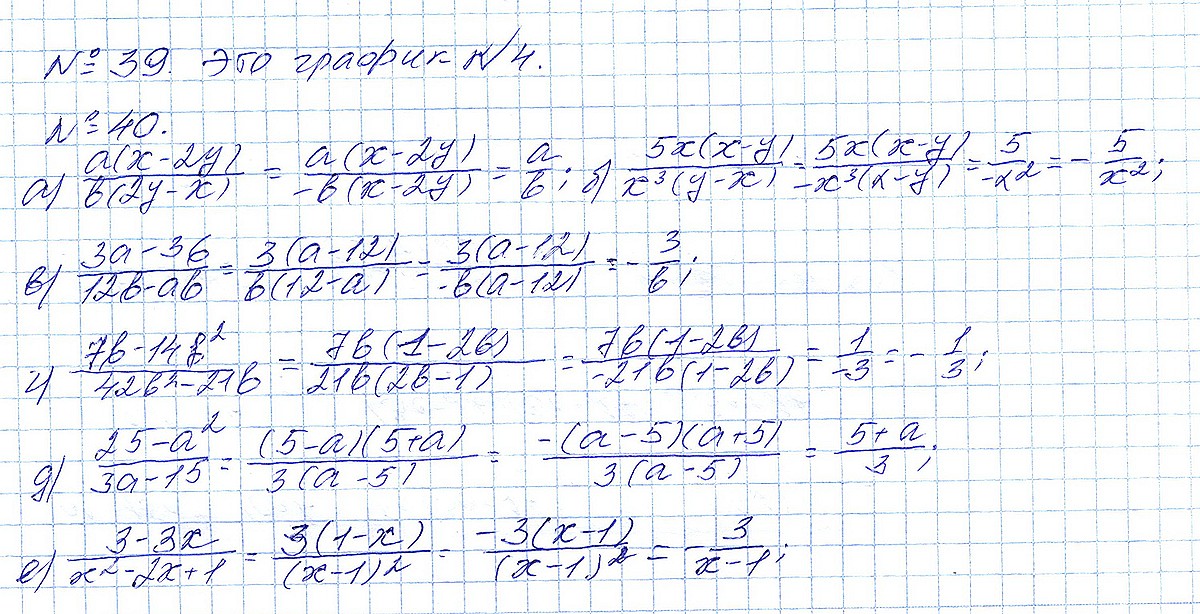 № 39. Это график №4.
№ 40.
а) a(x-2y)/b(2y-x) = a(x-2y)/-b(x-2y) = a/b; б) 5x(x-y)/x³(y-x) = 5x(x-y)/-x³(x-y) = 5/-x² = -5/x²;
в) 3a-36/12b-ab = 3(a-12)/b(12-a) = 3(a-12)/-b(a-12) = -3/b;
г) 7b-14b²/42b²-21b = 7b(1-2b)/21b(2b-1) = 7b(1-2b)/-21b(1-2b) = 1/-3 = -1/3;
д) 25-a²/3a-15 = (5-a)(5+a)/3(a-5) = -(a-5)(a+5)/3(a-5) = 5+a/3;
е) 3-3x/x²-2x+1 = 3(1-x)/(x-1)² = -3(x-1)/(x-1)² = -3/x-1;